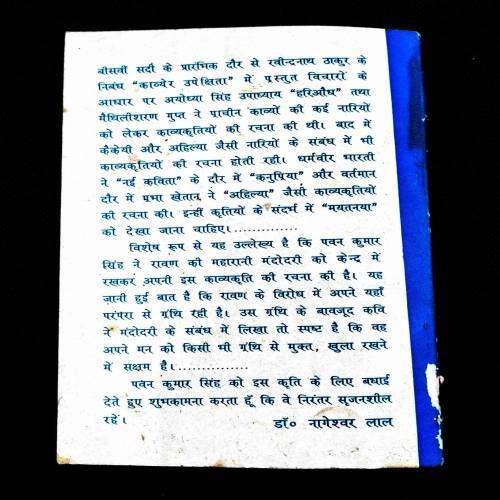 बीसवीं सदी के प्रारंभिक दौर से रवीन्द्रनाथ ठाकुर के
निबंध "काव्येर उपेक्षिता" में प्रस्तुत विचारों के
आधार पर अयोध्या सिंह उपाध्याय "हरिऔध" तथा
मैथिलीशरण गुप्त ने प्राचीन काव्यों की कई नारियों
को लेकर काव्यकृतियों की रचना की थी। बाद में
कैकेयी और अहिल्या जैसी नारियों के संबंध में भी
काव्यकृतियों की रचना होती रही। धर्मवीर भारती
ने "नई कविता" के दौर में "कनुप्रिया" और वर्तमान
दौर में प्रभा खेतान ने "अहिल्या" जैसी काव्यकृतियों
की रचना की। इन्हीं कृतियों के संदर्भ में "मयतनया"
को देखा जाना चाहिए।..............
विशेष रूप से यह उल्लेख्य है कि पवन कुमार
सिंह ने रावण की महारानी मंदोदरी को केन्द में
रखकर अपनी इस काव्यकृति की रचना की है। यह
जानी हुई बात है कि रावण के विरोध में अपने यहाँ
परंपरा से ग्रंथि रही है। उस ग्रंथि के बावजूद कवि
ने मंदोदरी के संबंध में लिखा तो स्पष्ट है कि वह
अपने मन को किसी भी ग्रंथि से मुक्त, खुला रखने
में सक्षम है।................
पवन कुमार सिंह को इस कृति के लिए बधाई
देते हुए शुभकामना करता हूँ कि वे निरंतर सृजनशील
रहें।
डॉ० नागेश्वर लाल